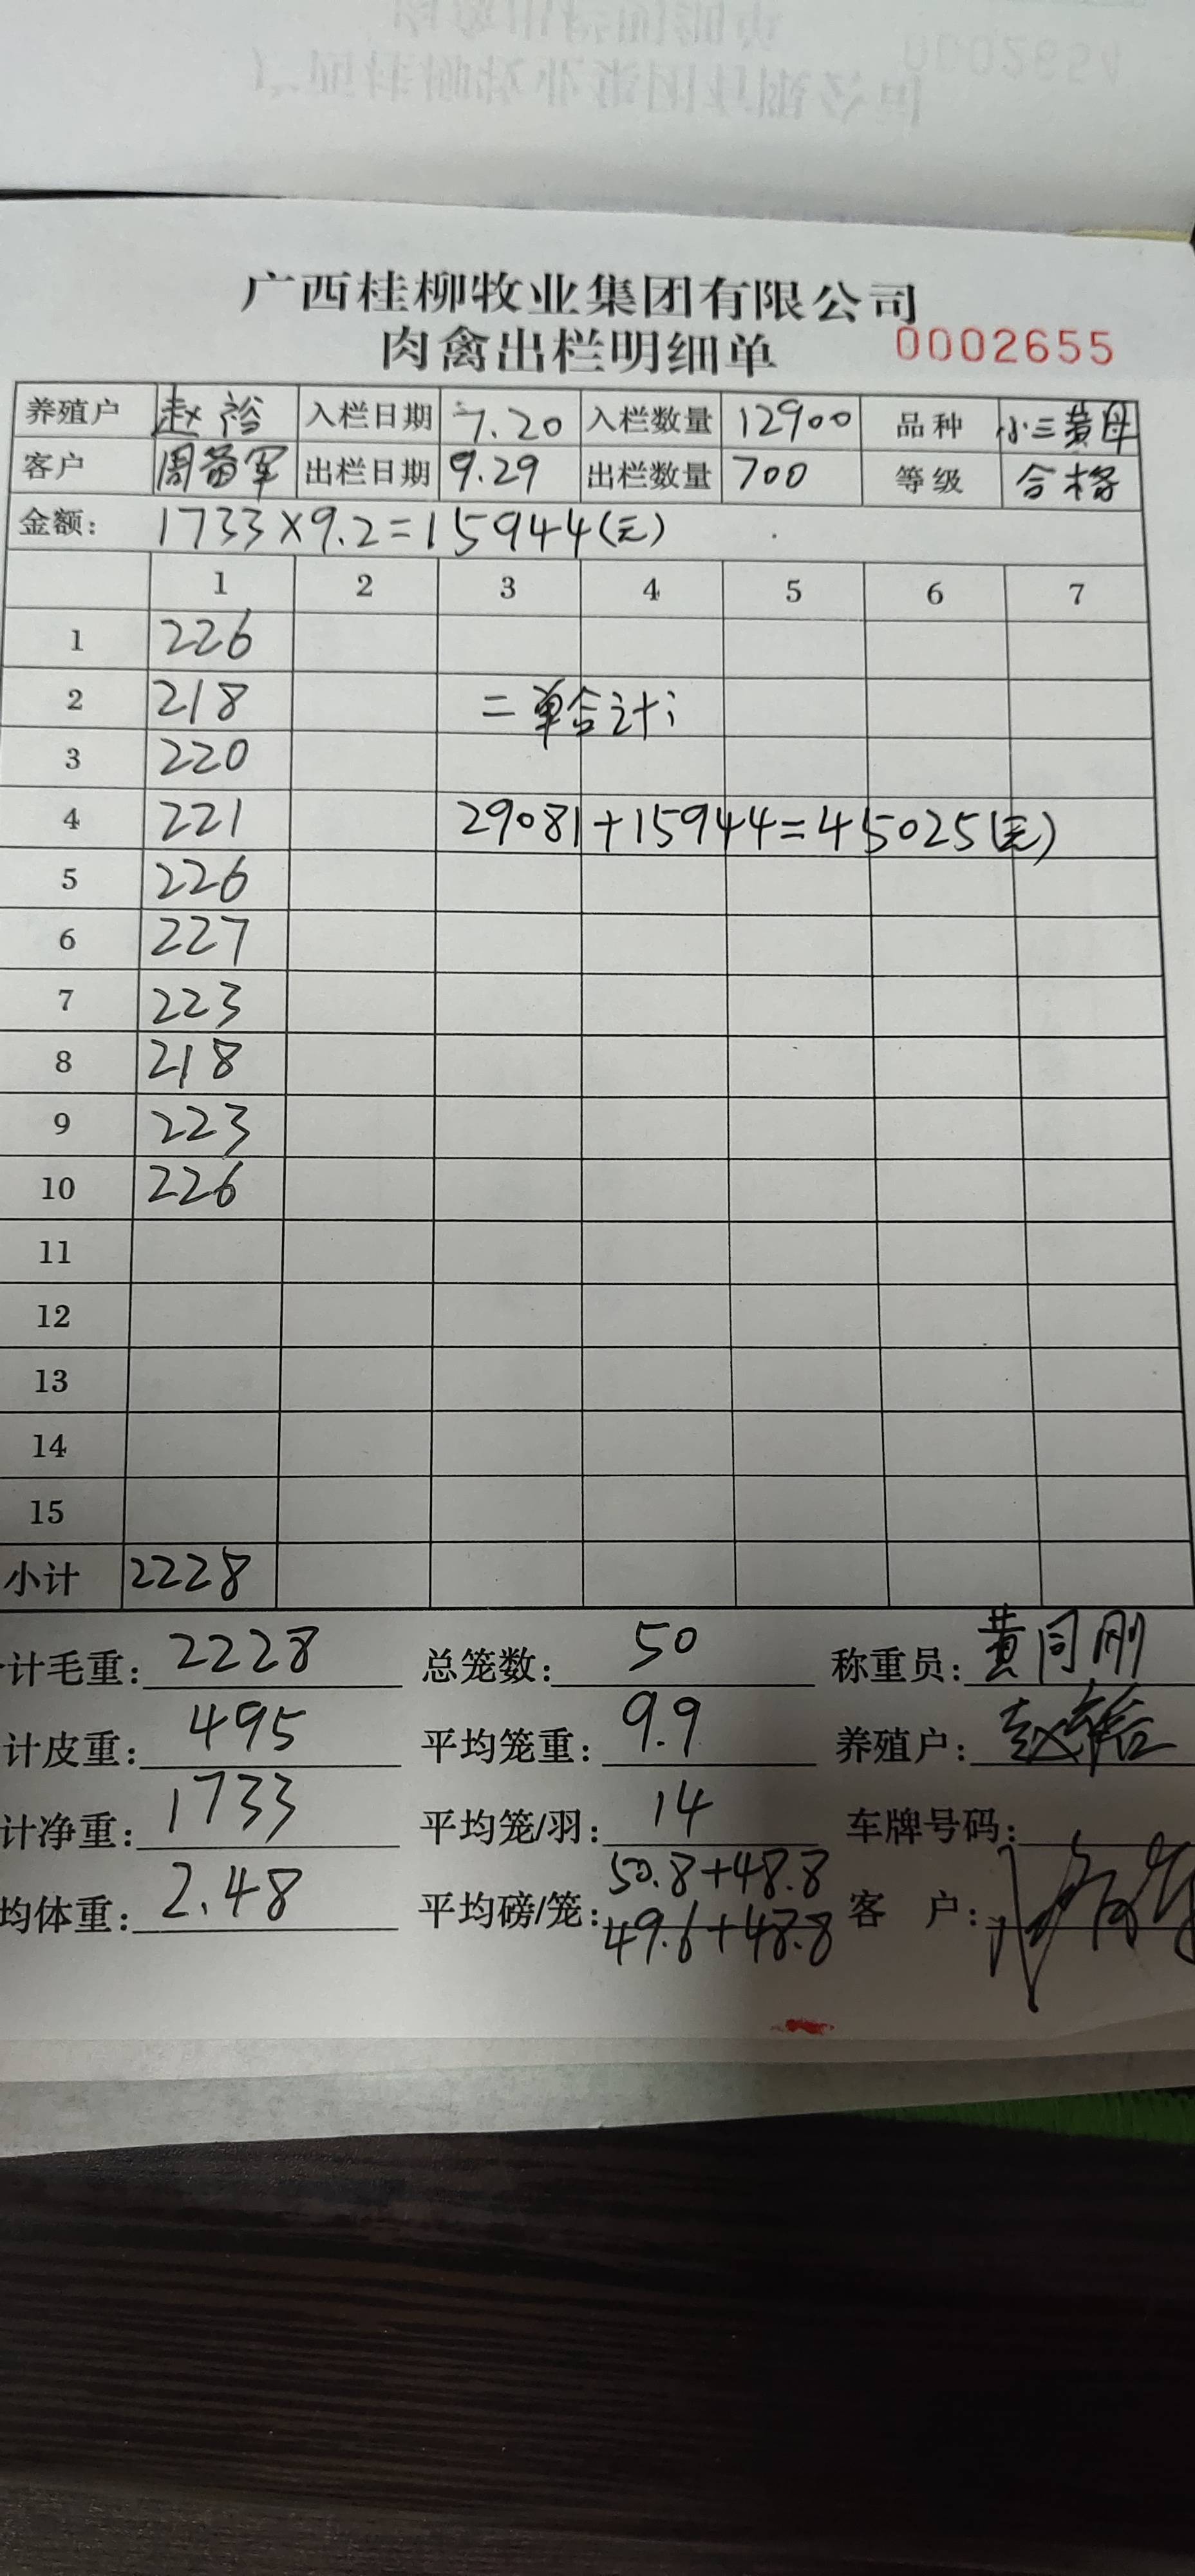 广西桂柳牧业集团有限公司
肉禽出栏明细单 0002655
养殖户 赵裕 入栏日期 7.20 入栏数量 12900 品种 小三黄母
客户 周备军 出栏日期 9.29 出栏数量 700 等级 合格
金额: 1733×9.2=15944(元)
1 2 3 4 5 6 7
1 226
2 218 二单合计:
3 220
4 221 29081+15944=45025(元)
5 226
6 227
7 223
8 218
9 223
10 226
11
12
13
14
15
小计 2228
计毛重: 2228 总笼数: 50 称重员: 黄同刚
计皮重: 495 平均笼重: 9.9 养殖户: 赵裕
计净重: 1733 平均笼/羽: 14 车牌号码:
均体重: 2.48 平均磅/笼: 50.8+48.8 客 户:
49.6+48.8